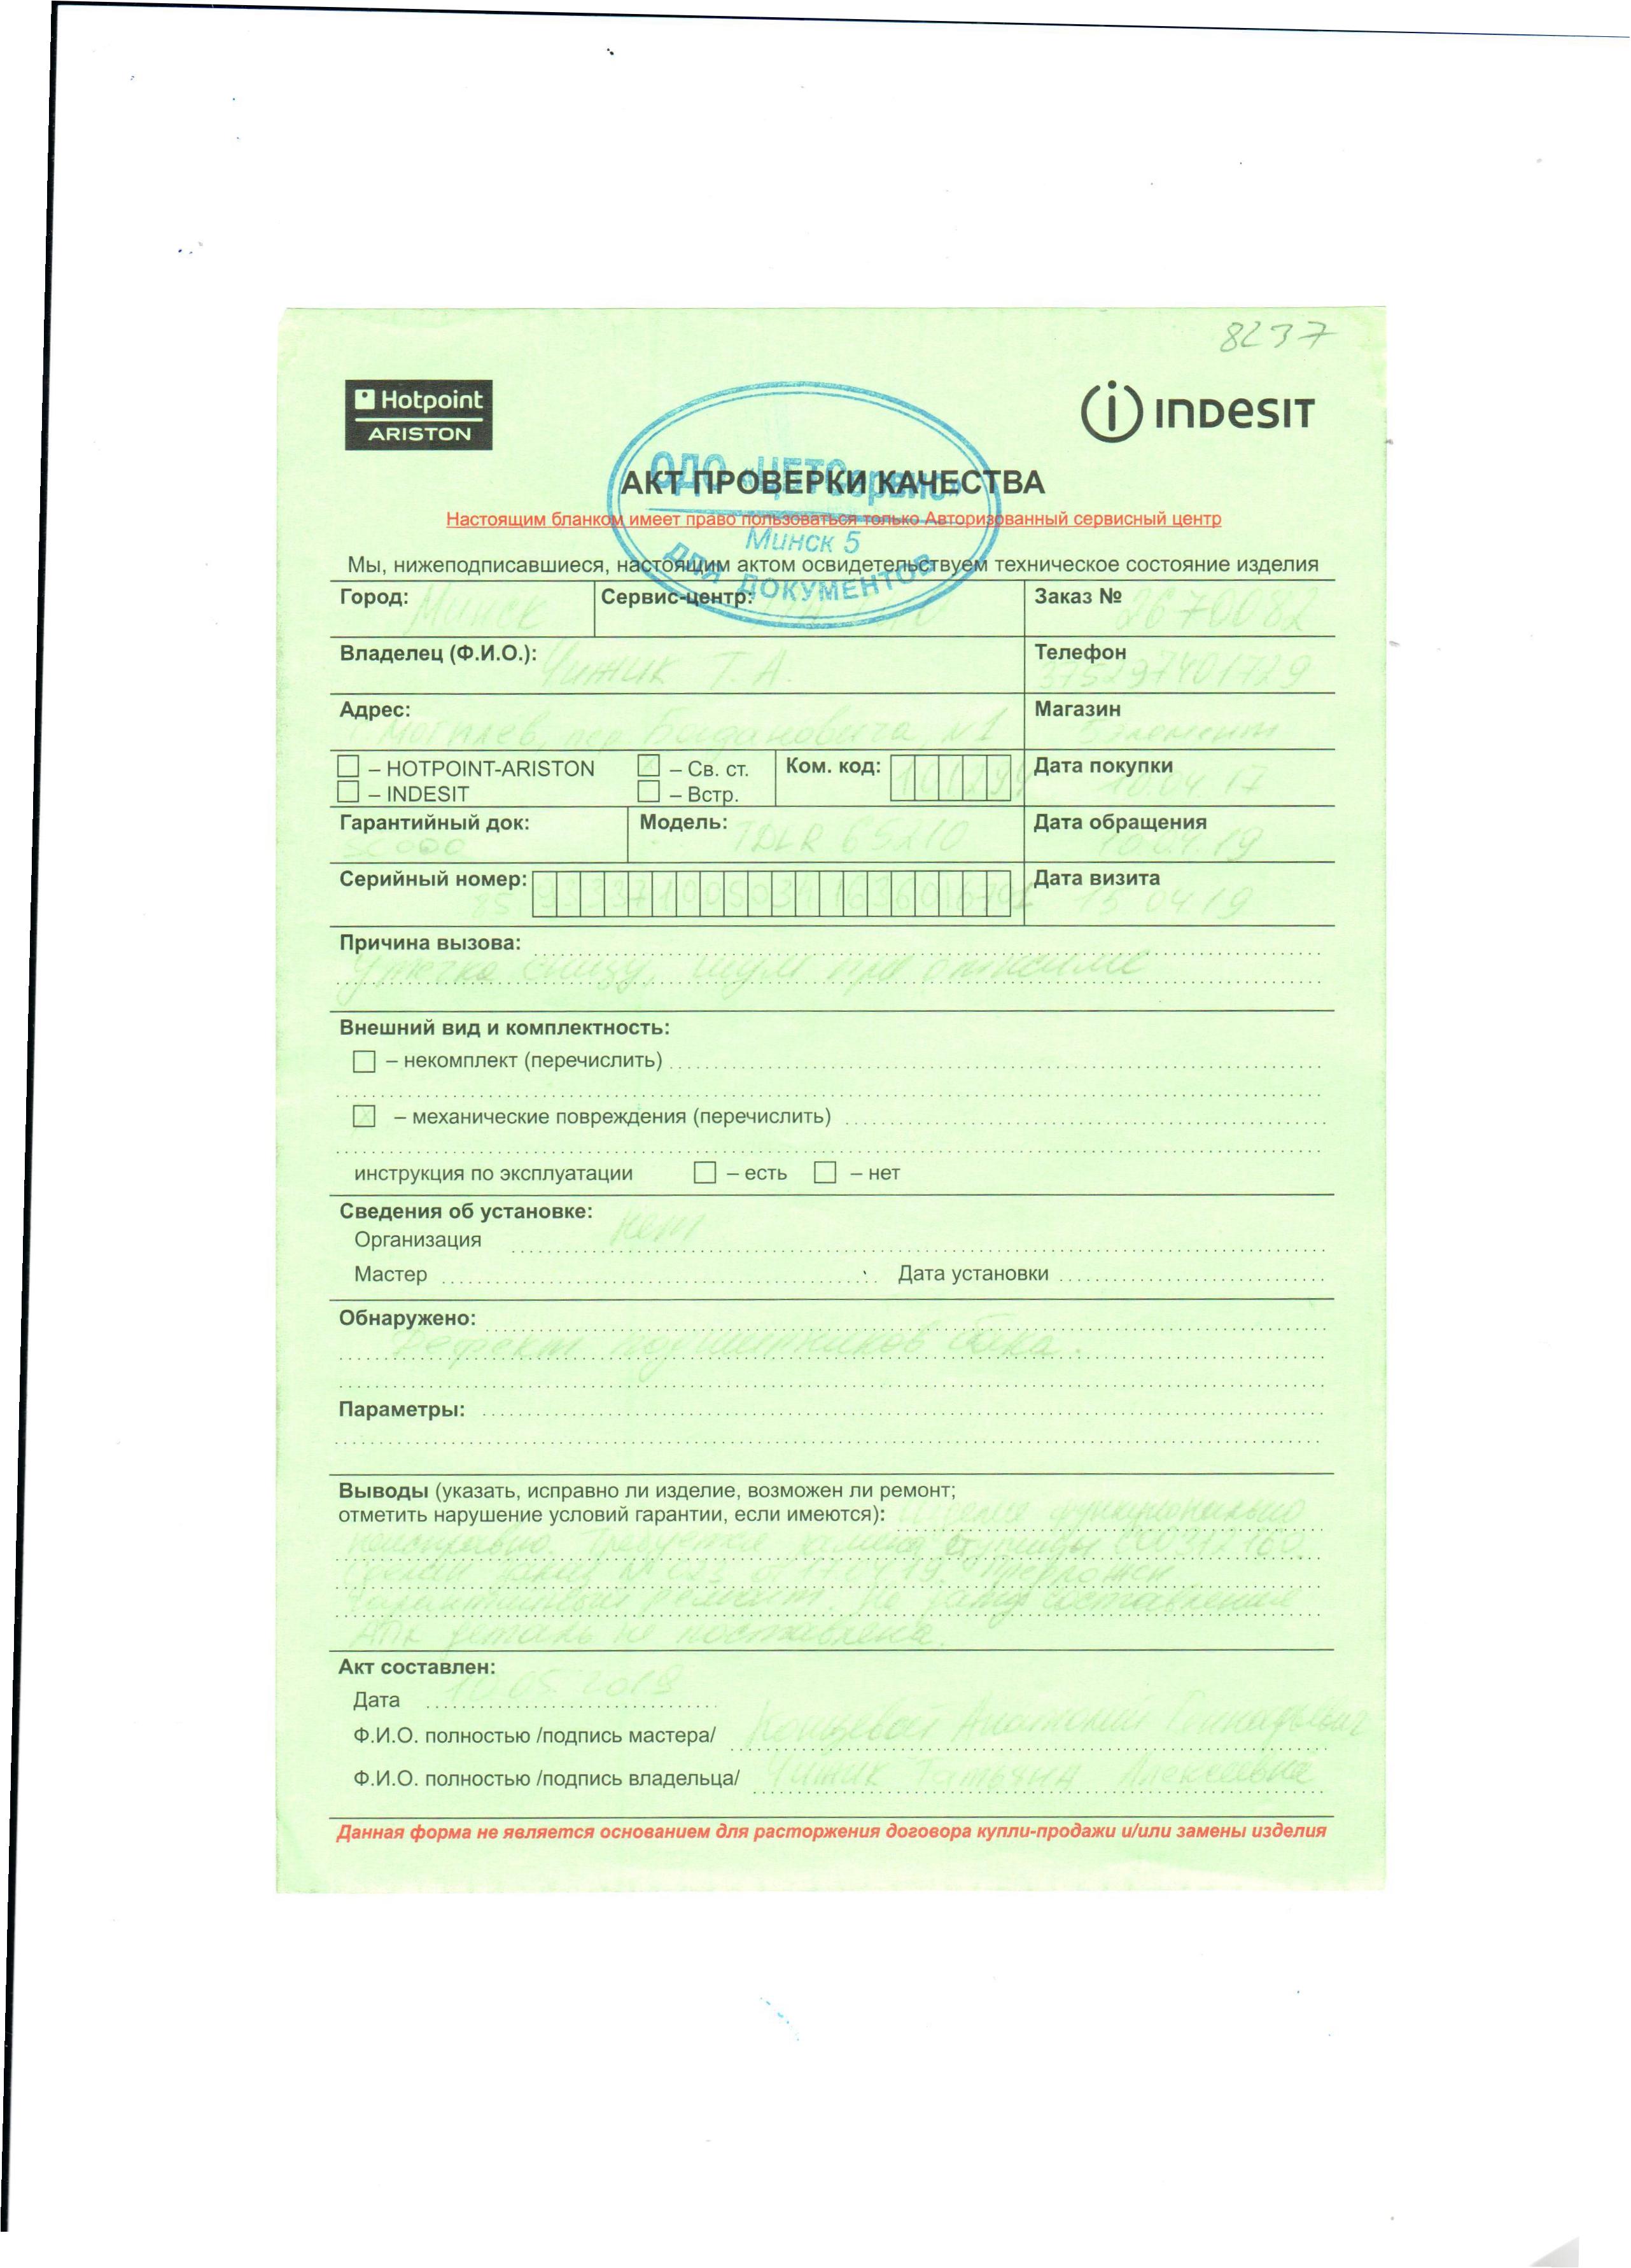 8237
Hotpoint
ARISTON
INDESIT
ОДО «ЦЕТСервис»
Минск 5
ДЛЯ ДОКУМЕНТОВ
АКТ ПРОВЕРКИ КАЧЕСТВА
Настоящим бланком имеет право пользоваться только Авторизованный сервисный центр
Мы, нижеподписавшиеся, настоящим актом освидетельствуем техническое состояние изделия
Город: Минск Сервис-центр: Заказ № 2670082
Владелец (Ф.И.О.): Чижик Т. А. Телефон 375297401729
Адрес: г. Могилев, пер Богдановича, №1 Магазин 5 элемент
– HOTPOINT-ARISTON – Св. ст. Ком. код: Дата покупки 10.04.17
– INDESIT – Встр.
Гарантийный док: Модель: TDLR 65210 Дата обращения 10.04.19
Серийный номер: Дата визита 15 04 19
Причина вызова:
Утечка снизу, шум при отжиме
Внешний вид и комплектность:
– некомплект (перечислить)
– механические повреждения (перечислить)
инструкция по эксплуатации – есть – нет
Сведения об установке:
Организация нет
Мастер Дата установки
Обнаружено:
Дефект подшипников бака.
Параметры:
Выводы (указать, исправно ли изделие, возможен ли ремонт;
отметить нарушение условий гарантии, если имеются): Изделие функционально
неисправно. Требуется замена ступицы
Сделан заказ от 17.04.19. Предложен
гарантийный ремонт. На дату составления
АПК деталь не поставлена.
Акт составлен:
Дата 10.05.2019
Ф.И.О. полностью /подпись мастера/ Анатолий Геннадьевич
Ф.И.О. полностью /подпись владельца/ Чижик Татьяна Алексеевна
Данная форма не является основанием для расторжения договора купли-продажи и/или замены изделия